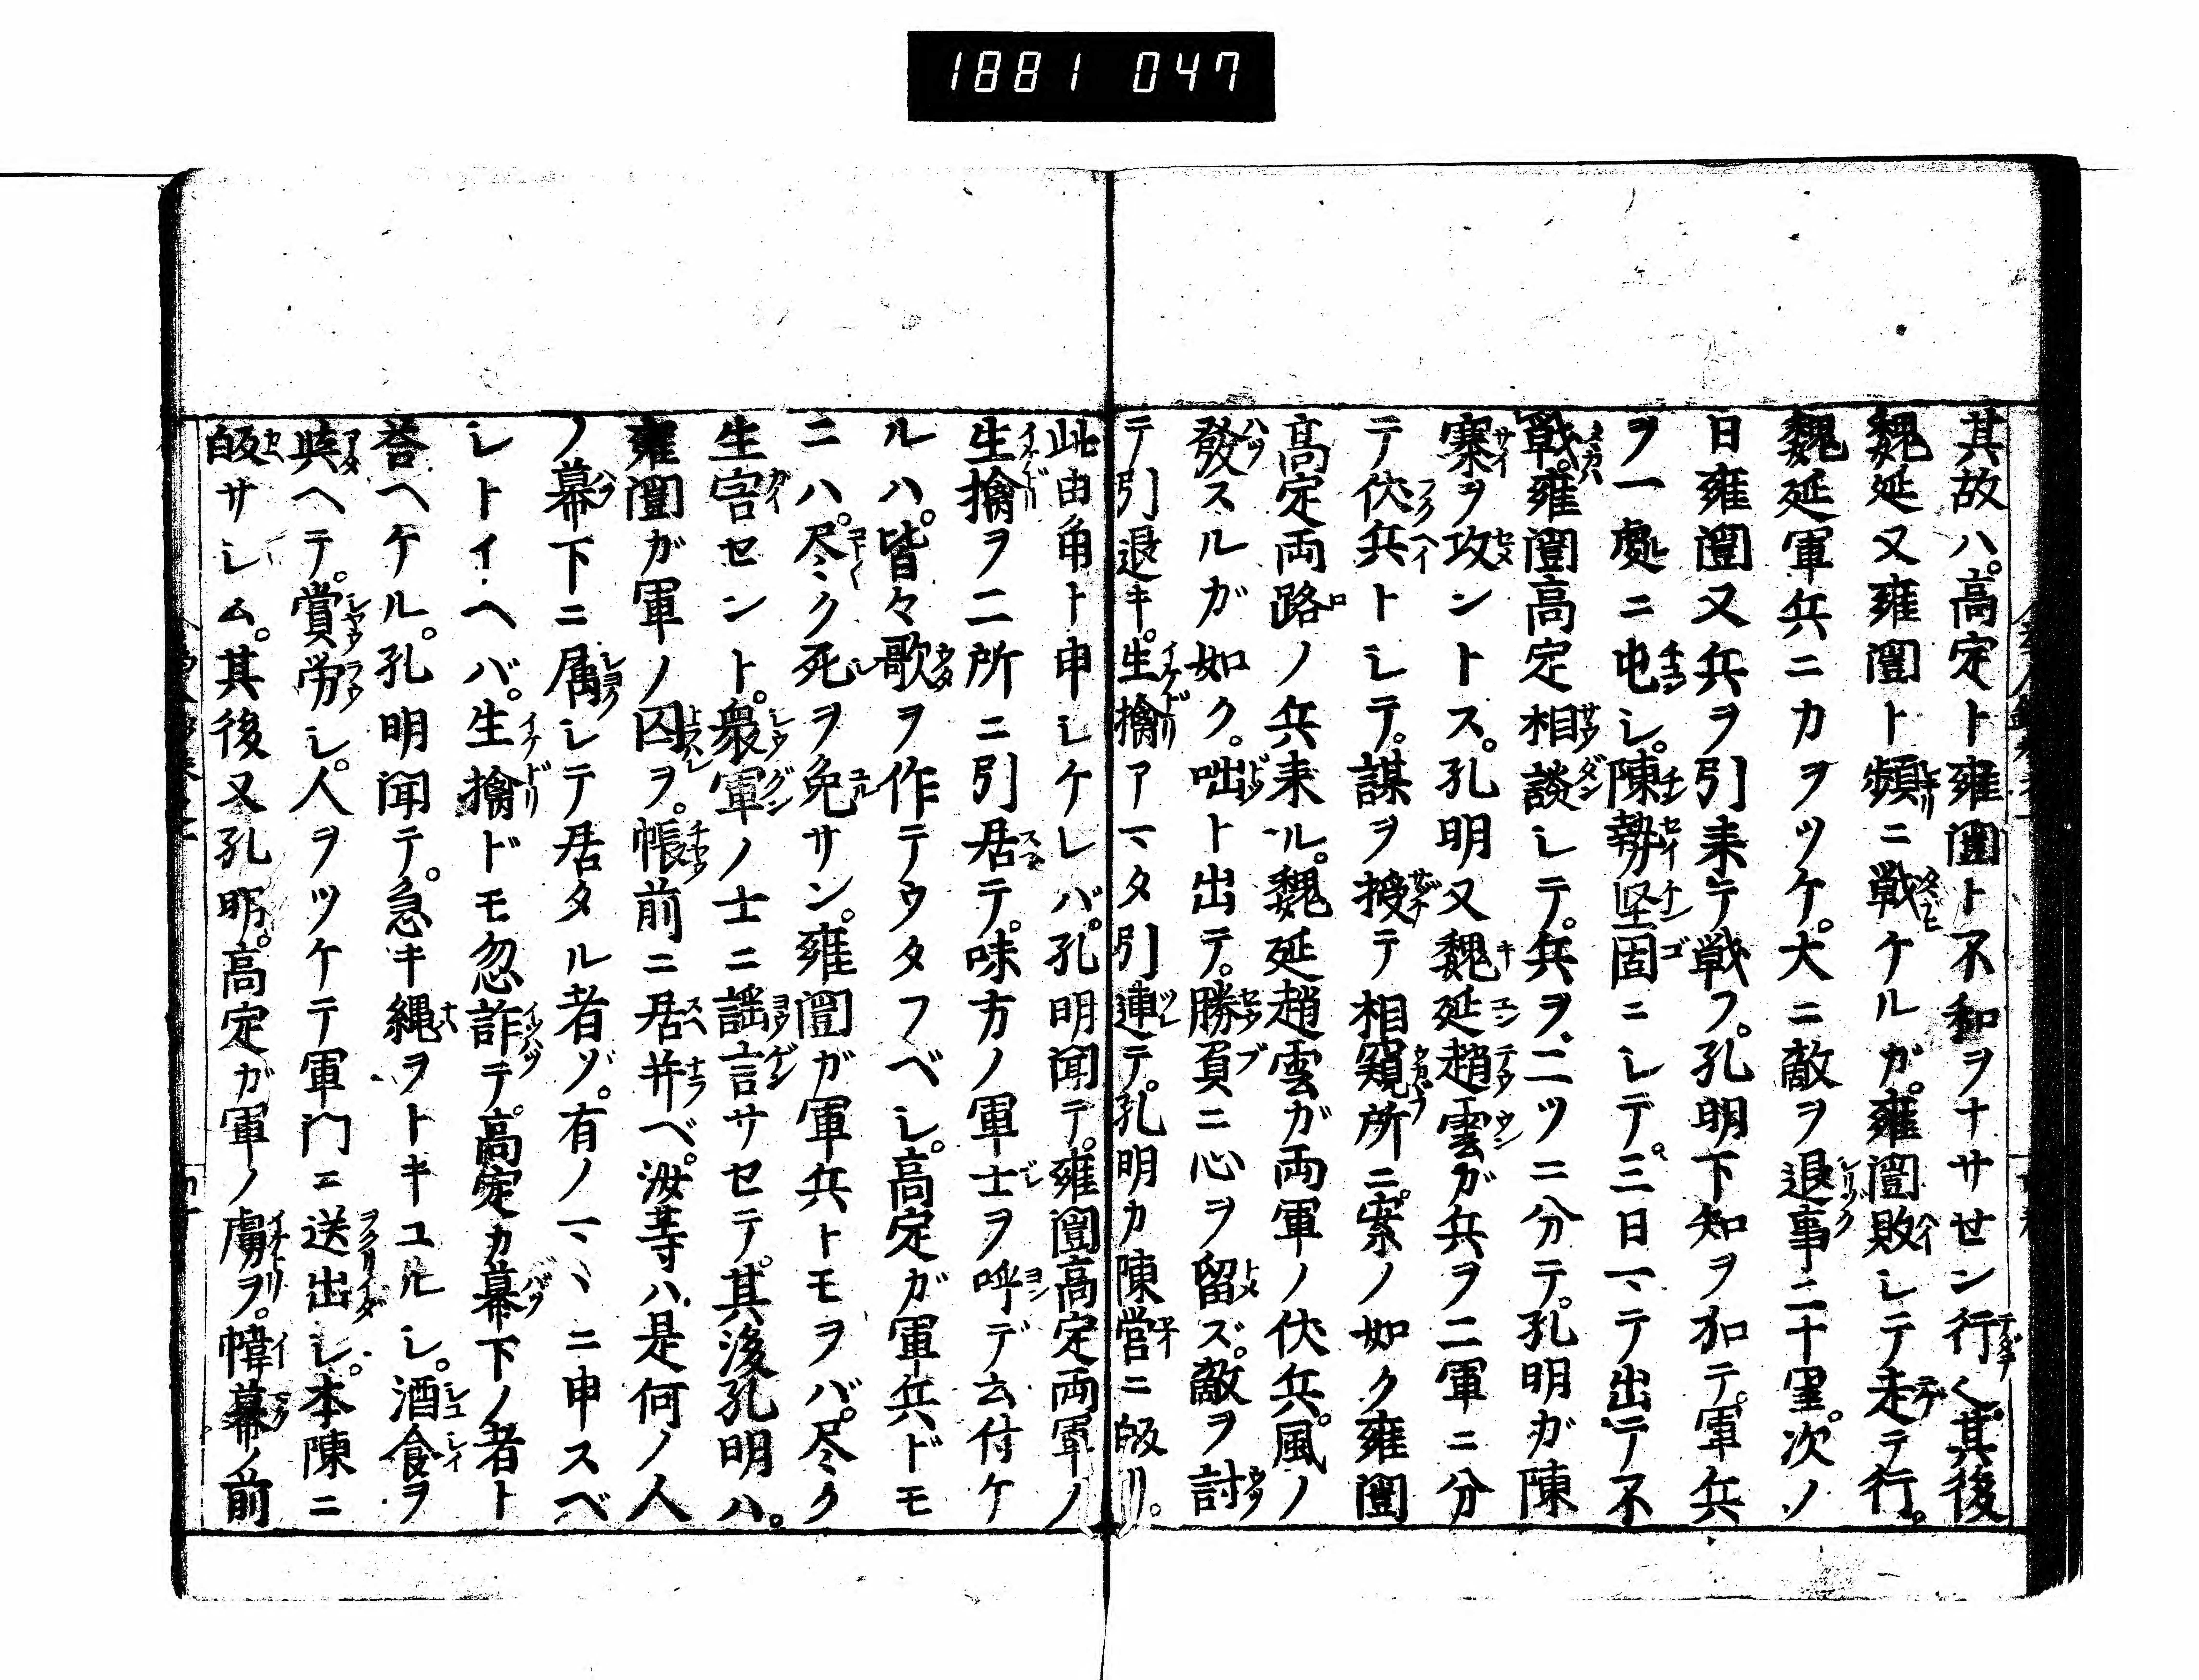 1881 047
其故ハ。高定ト雍闓ト不和ヲナサセン行ク。其後
魏延又雍闓ト頻ニ戦ケルガ。雍闓敗シテ走テ行。
魏延軍兵ニカヲツケ。大ニ敵ヲ退事二十里。次ノ
日雍闓又兵ヲ引来テ戦フ。孔明下知ヲ加テ。軍兵
ヲ一處ニ屯シ。陳勢堅固ニシテ。三日マテ出テ不
戦。雍闓高定相談シテ。兵ヲ二ツニ分テ。孔明ガ陳
寨ヲ攻ントス。孔明又魏延趙雲ガ兵ヲ二軍ニ分
テ伏兵トシテ。謀ヲ授テ相窺所ニ。案ノ如ク雍闓
高定両路ノ兵来ル。魏延趙雲ガ両軍ノ伏兵。風ノ
發スルガ如ク。咄ト出テ。勝負ニ心ヲ留ズ。敵ヲ討
テ引退キ。生擒アマタ引連テ。孔明カ陳営ニ皈リ。
此由角ト申シケレバ。孔明聞テ。雍闓高定両軍ノ
生擒ヲ二所ニ引居テ。味方ノ軍士ヲ呼デ云付ケ
ルハ。皆々歌ヲ作テウタフベシ。高定ガ軍兵ドモ
ニハ。尽ミク死ヲ免サン。雍闓ガ軍兵トモヲバ。尽ク
生害セント。衆軍ノ士ニ謡言サセテ。其後孔明ハ。
雍闓ガ軍ノ囚ヲ。帳前ニ居并ベ。汝等ハ是何ノ人
ノ幕下ニ属シテ居タル者ゾ。有ノマヽニ申スベ
シトイヘバ。生擒ドモ忽詐テ。高定カ幕下ノ者ト
荅ヘケル。孔明聞テ。急キ縄ヲトキユルシ。酒食ヲ
與ヘテ。賞労シ。人ヲツケテ軍門ニ送出シ。本陳ニ
皈サシム。其後又孔明。高定ガ軍ノ虜ヲ。幃幕ノ前